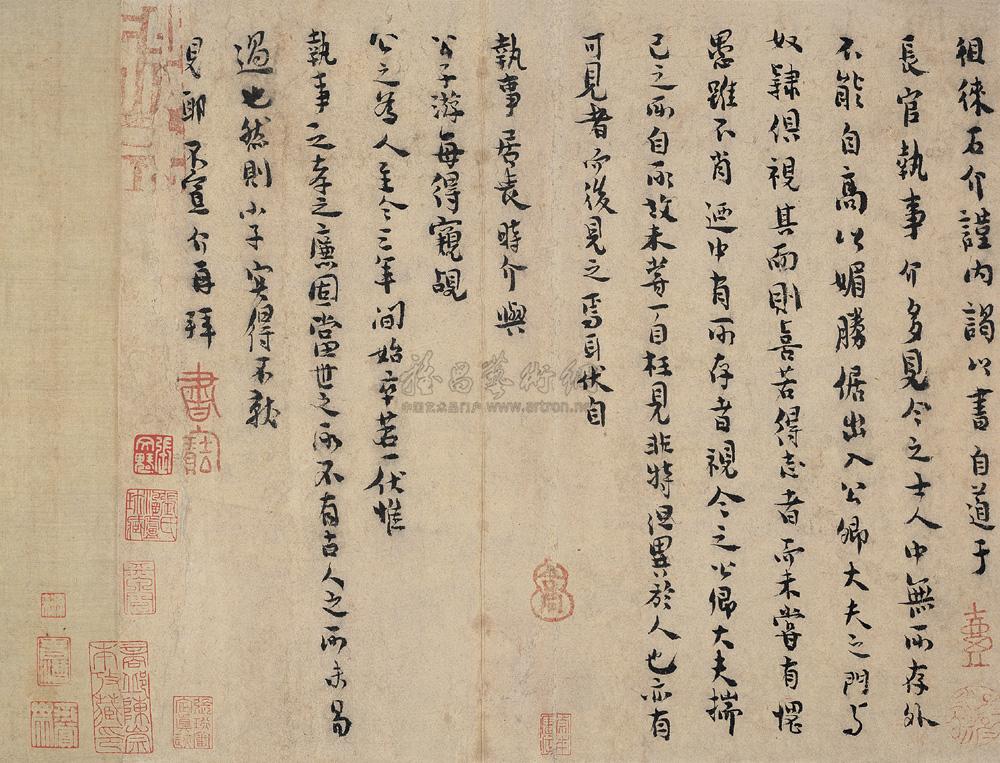 徂徠石介謹内謁以書自道于
長官執事介多見今之士人中無所存外
不能自高以媚勝倨出入公卿大夫之門与
奴隸俱視其面則喜若得志者而未嘗有愠
愚雖不肖迺中有所存者視今之公卿大夫揣
己之所自所故未嘗一自枉見非特但異於人也亦有
可見者而後見之焉耳伏自
執事居喪時介與
公子游每得窺覘
公之為人至今三年間始卒若一伏惟
執事之孝之廉固當世之所不有古人之所未易
過也然則小子安得不就
見耶不宣介再拜
書
張氏
雅昌藝術網
中国艺术品门户 www.artron.net